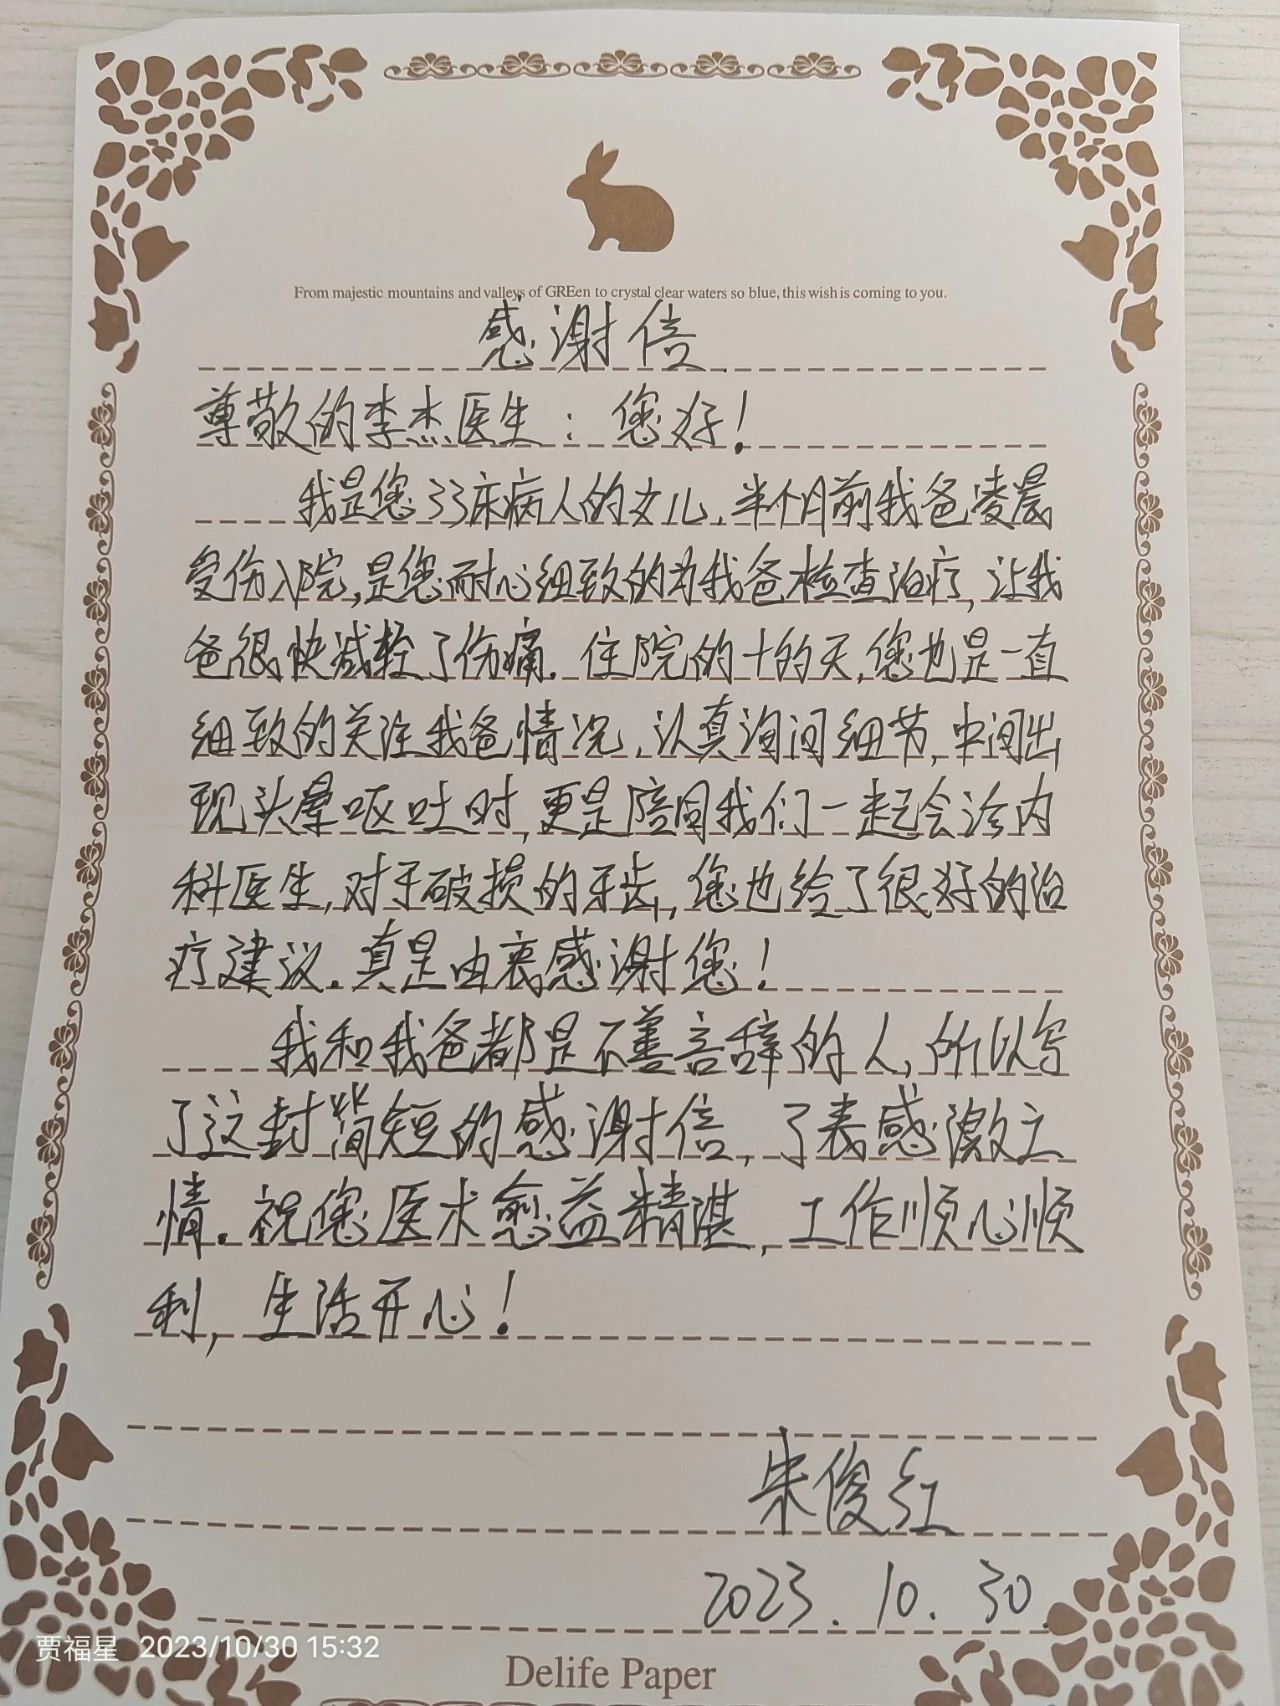 From majestic mountains and valleys of GREen to crystal clear waters so blue, this wish is coming to you.
感谢信
尊敬的李杰医生：您好！
我是您33床病人的女儿，半个月前我爸凌晨
受伤入院，是您耐心细致的为我爸检查治疗，让我
爸很快减轻了伤痛。住院的十的天，您也是一直
细致的关注我爸情况，认真询问细节，中间出
现头晕呕吐时，更是陪同我们一起会诊内
科医生，对于破损的牙齿，您也给了很好的治
疗建议。真是由衷感谢您！
我和我爸都是不善言辞的人，所以写
了这封简短的感谢信，了表感激之
情。祝您医术愈益精湛，工作顺心顺
利，生活开心！
朱俊红
2023.10.30
贾福星 2023/10/30 15:32
Delife Paper